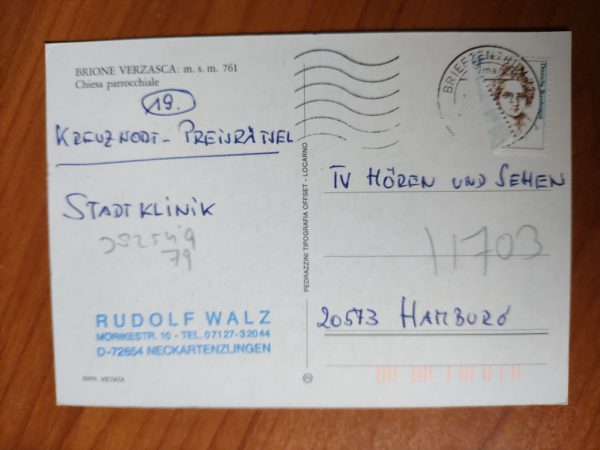 BRIONE VERZASCA: m. s. m. 761
Chiesa parrocchiale
19.
KREUZWORT - PREISRÄTSEL
STADTKLINIK
79
RUDOLF WALZ
MÖRIKESTR. 10 - TEL. 07127-32044
D-72654 NECKARTENZLINGEN
RIPR. VIETATA
PEDRAZZINI TIPOGRAFIA OFFSET - LOCARNO
BRIEFZENTRUM
TV HÖREN UND SEHEN
11703
20573 HAMBURG